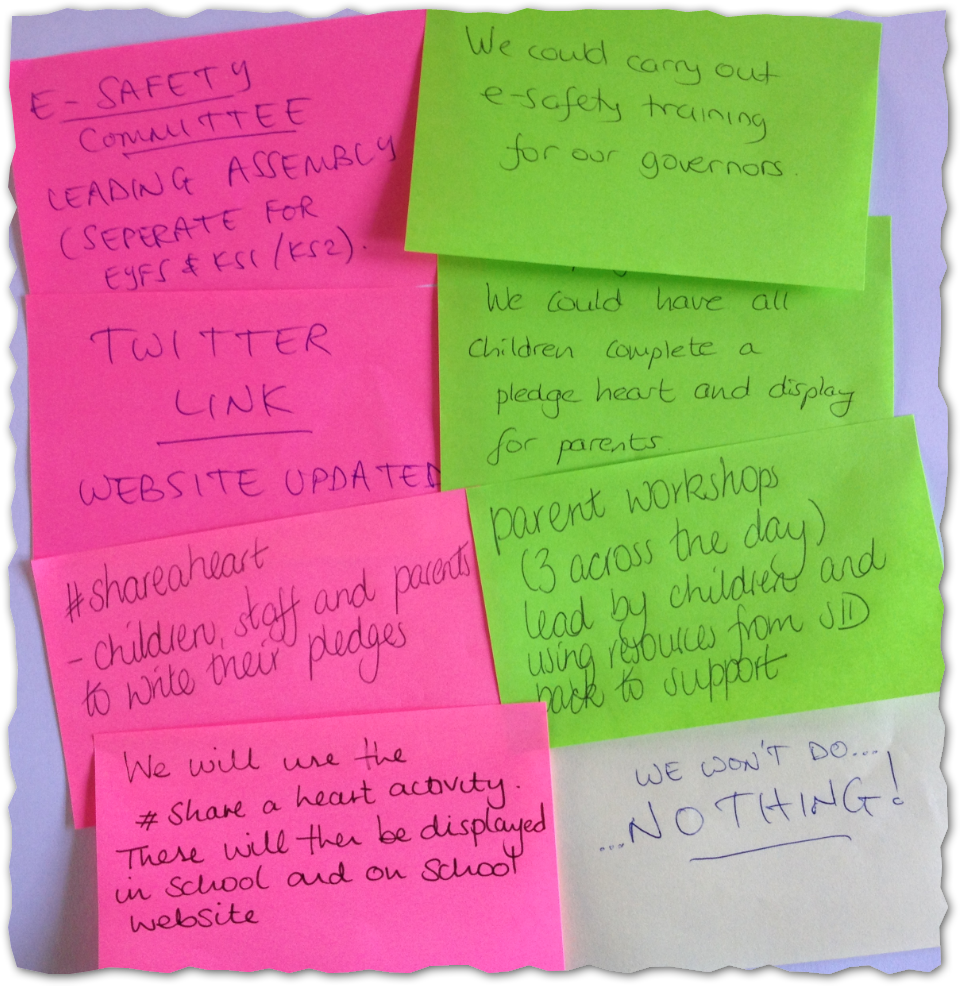 E-SAFETY
COMMITTEE
LEADING ASSEMBLY
(SEPERATE FOR
EYFS & KS1/KS2).
TWITTER
LINK
WEBSITE UPDATED
#shareaheart
- children, staff and parents
to write their pledges
We will use the
# Share a heart activity.
These will then be displayed
in school and on school
website
We could carry out
e-safety training
for our governors.
We could have all
children complete a
pledge heart and display
for parents
parent workshops
(3 across the day)
lead by children and
using resources from SID
pack to support
WE WON'T DO...
...NOTHING!